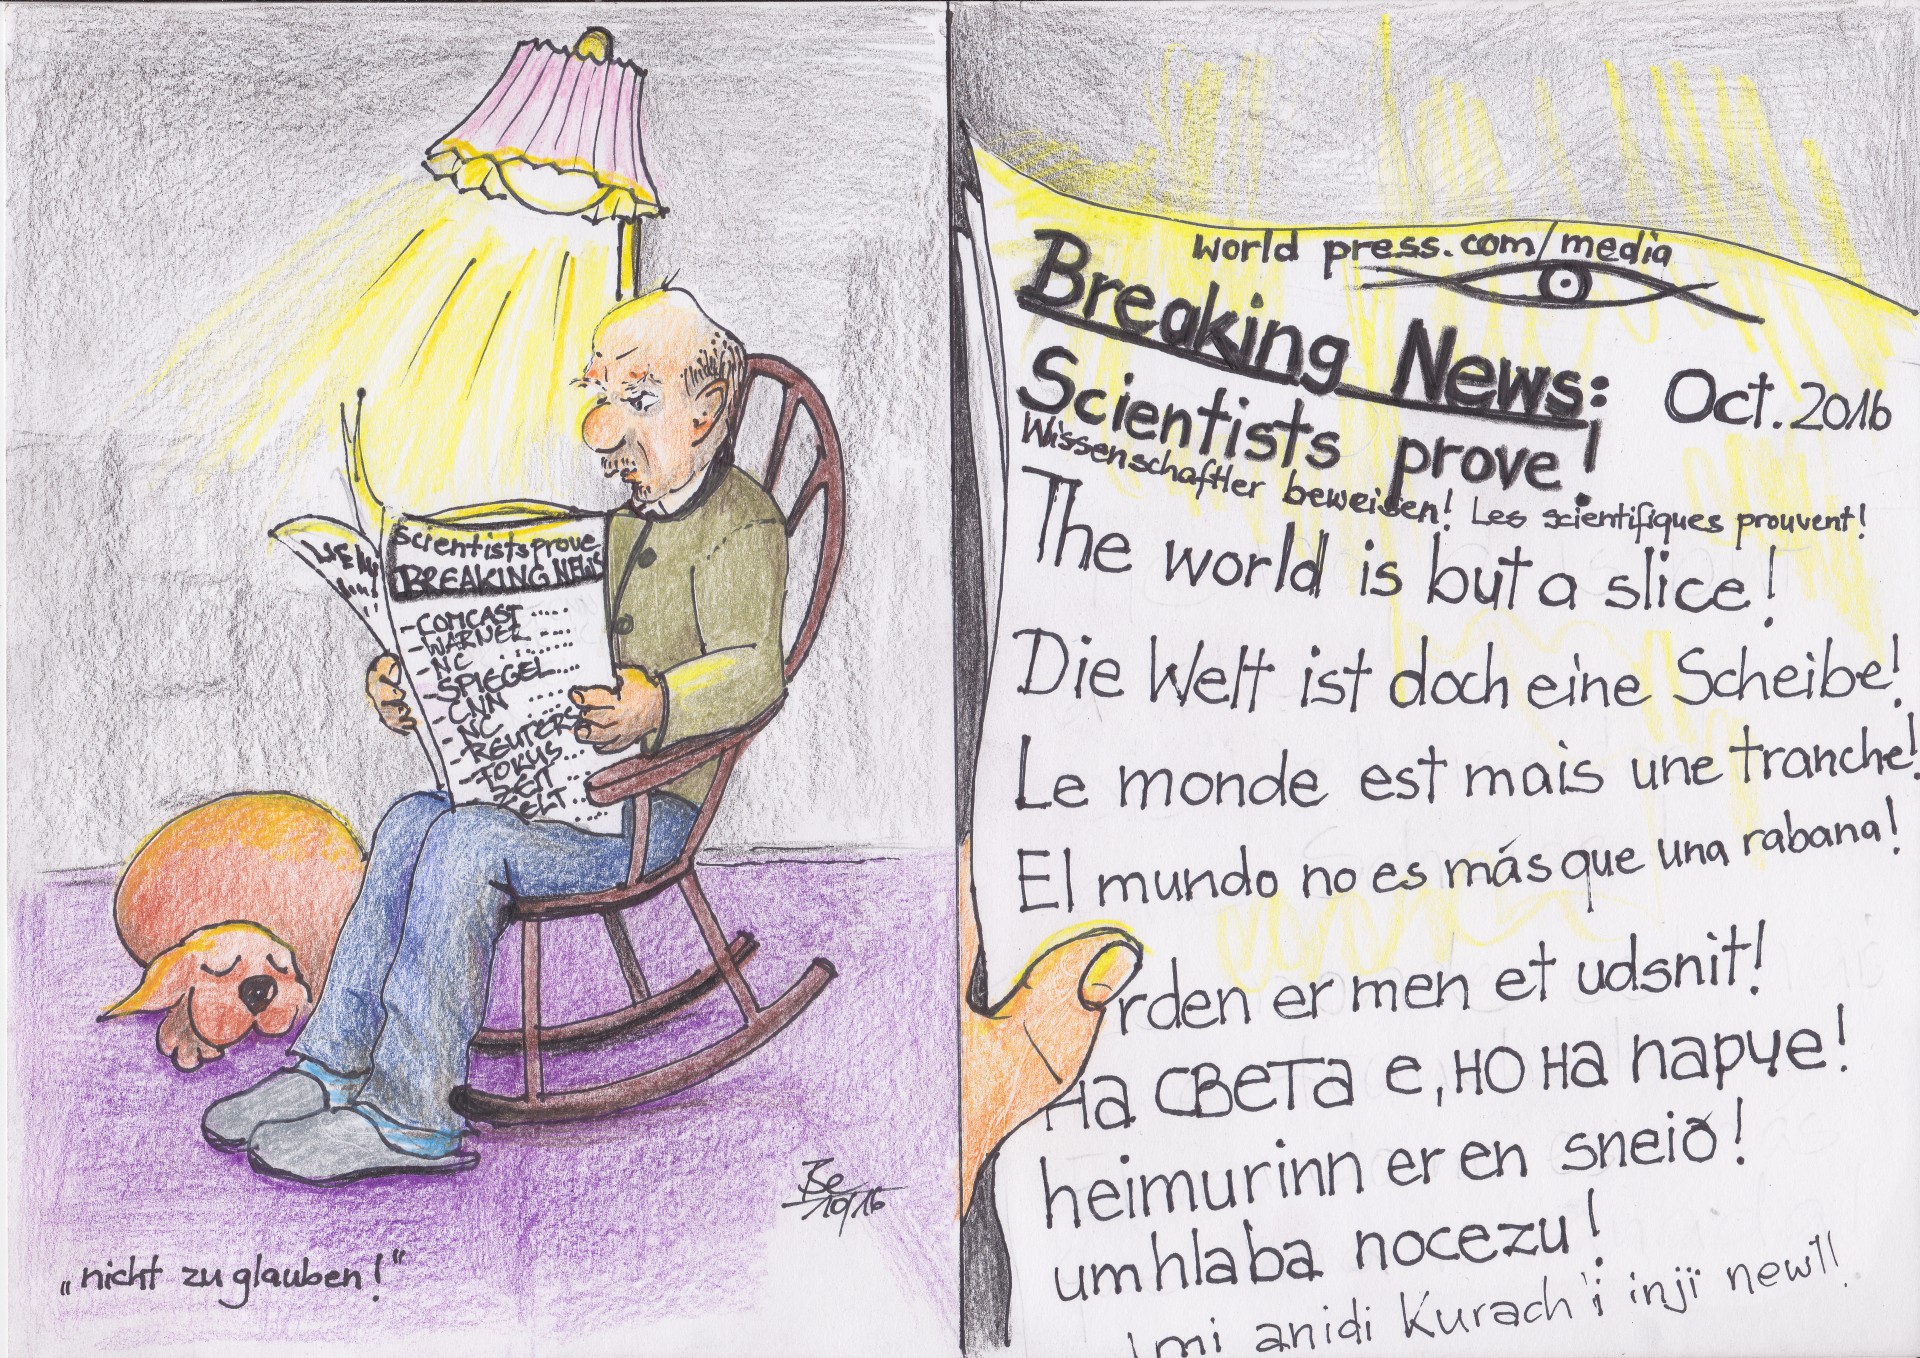 Scientists prove
BREAKING NEWS
- COMCAST .....
- WARNER ....
- NC .......
- SPIEGEL....
- CNN .....
- NC ....
- REUTERS
- FOKUS...
- ZEIT ...
ELT...
Be
10/16
„nicht zu glauben!“
world press.com/media
Breaking News:
Oct. 2016
Scientists prove!
Wissenschaftler beweisen! Les scientifiques prouvent!
The world is but a slice!
Die Welt ist doch eine Scheibe!
Le monde est mais une tranche!
El mundo no es más que una rabana!
rden er men et udsnit!
На СВеТа е, НО На парче!
heimurinn er en sneið!
umhlaba nocezu!
mi anidi Kurach'i inji new!!